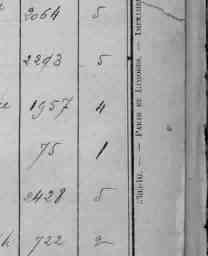 2064 5
2293 5
1957 4
75 1
2428 5
722 2
PARIS ET LIMOGES. — IMPRIMER